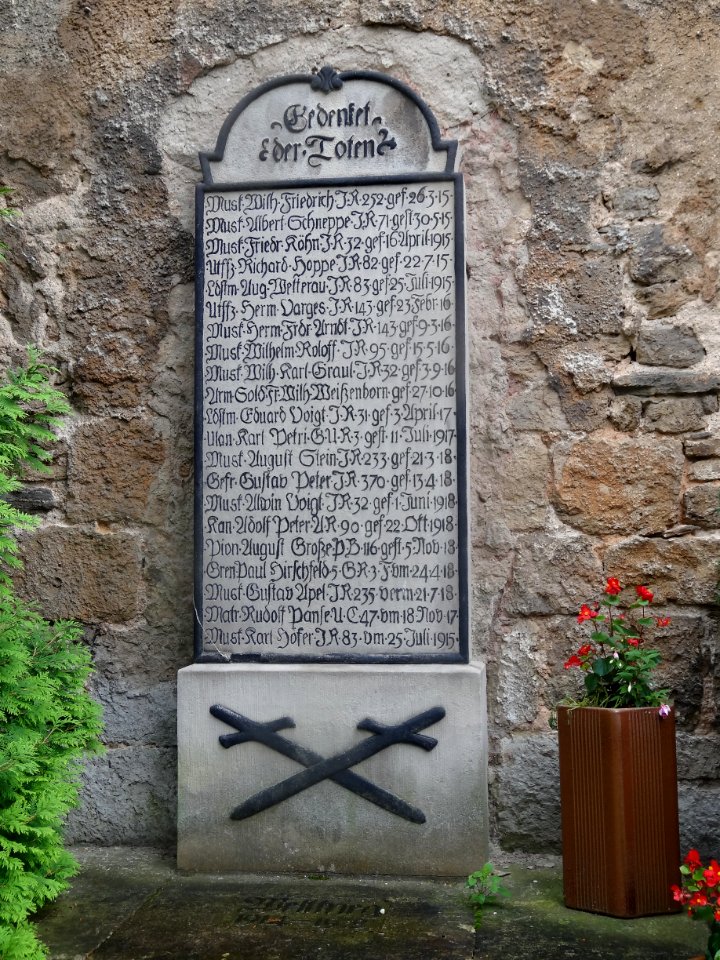 Gedenket
der·Toten
Musk·Wilh·Friedrich·J·R·252·gef·26·3·15·
Musk·Albert·Schneppe·J·R·71·gest·30·5·15·
Musk·Friedr·Köhn·J·R·32·gef·16·April·1915·
Utffz·Richard·Hoppe·J·R·82·gef·22·7·15·
Ldstm·Aug·Wetterau·J·R·83·gef·25·Juli·1915·
Utffz·Herm·Varges·J·R·143·gef·23·Febr·16·
Musk·Herm·Frdr·Arndt·J·R·143·gef·9·3·16·
Musk·Wilhelm·Roloff·J·R·95·gef·15·5·16·
Musk·Wilh·Karl·Graul·J·R·32·gef·3·9·16·
Arm·Sold·Fr·Wilh·Weißenborn·gef·27·10·16·
Ldstm·Eduard·Voigt·J·R·31·gef·3·April·17·
Ulan·Karl·Petri·G·U·R·3·gest·11·Juli·1917·
Musk·August·Stein·J·R·233·gef·21·3·18·
Gefr·Gustav·Peter·J·R·370·gef·13·4·18·
Musk·Alwin·Voigt·J·R·32·gef·1·Juni·1918·
Kan·Adolf·Peter·A·R·90·gef·22·Okt·1918·
Pion·August·Große·P·B·116·gest·5·Nov·18·
Gren·Paul·Hirschfeld·5·G·R·3·F·vm·24·4·18·
Musk·Gustav·Apel·J·R·235·verw·21·7·18·
Matr·Rudolf·Panse·U·C·47·vm·18·Nov·17·
Musk·Karl·Höfer·J·R·83·vm·25·Juli·1915·